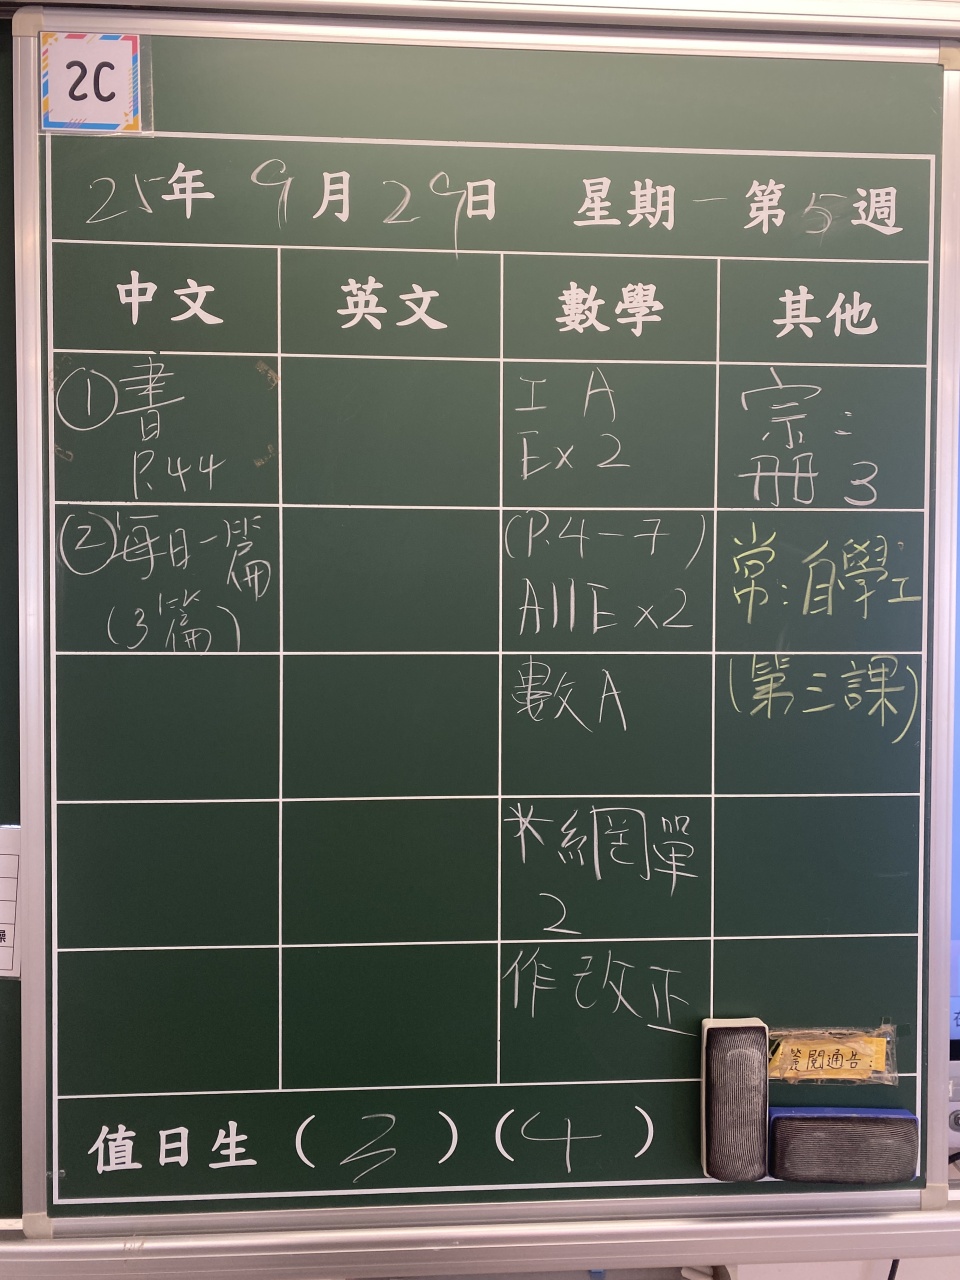 2C
25年 9月29日 星期一第5週
中文 英文 數學 其他
①書
P.44
②每日一篇
(3篇)
工 A
Ex 2
(P.4-7)
AllE x2
數A
*網單
2
作 改正
宗:
冊 3
常:自學工
(第三課)
簽閱通告:
值日生 (3) (4)